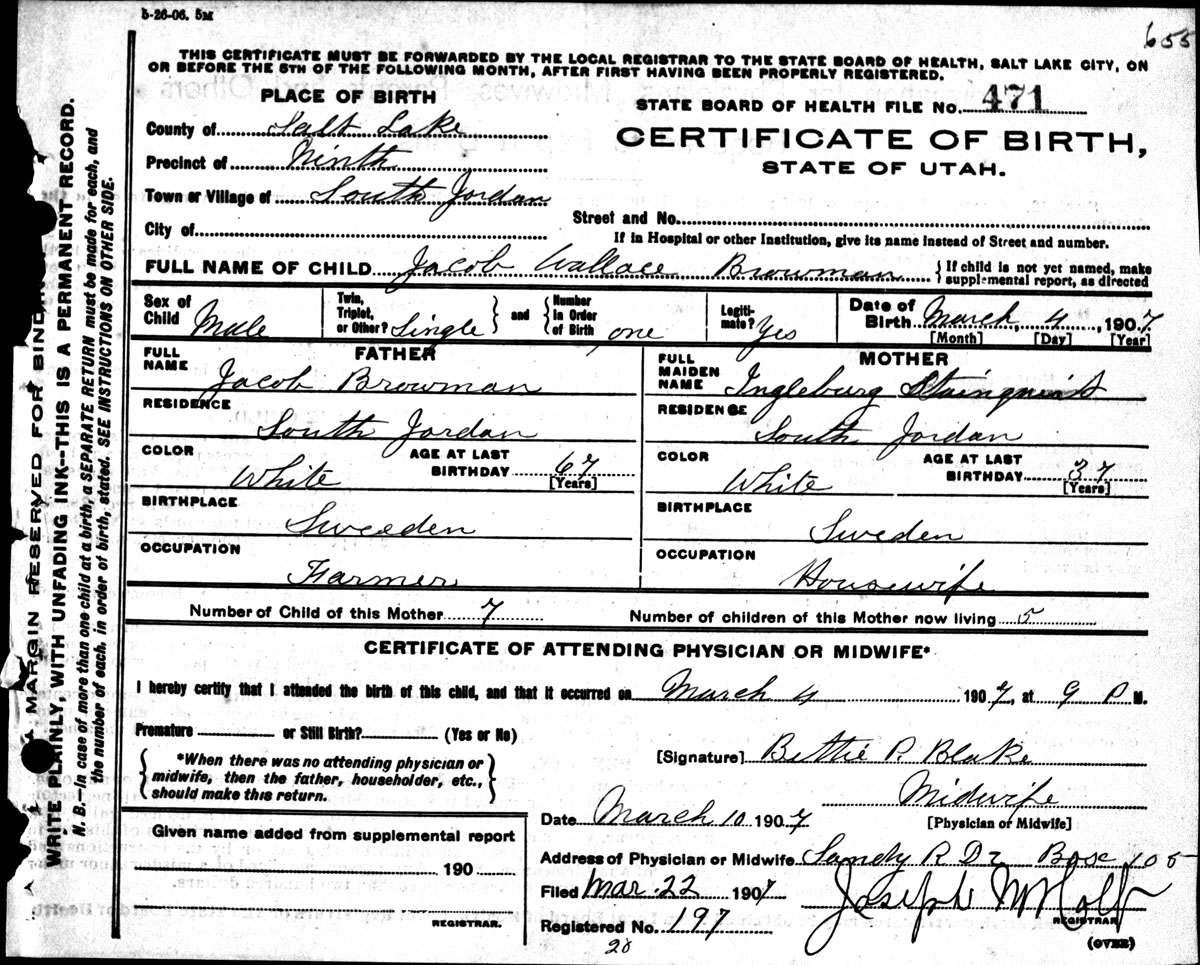 5-26-06. 5M
655
THIS CERTIFICATE MUST BE FORWARDED BY THE LOCAL REGISTRAR TO THE STATE BOARD OF HEALTH, SALT LAKE CITY, ON
OR BEFORE THE 5TH OF THE FOLLOWING MONTH, AFTER FIRST HAVING BEEN PROPERLY REGISTERED.
PLACE OF BIRTH
STATE BOARD OF HEALTH FILE No. 471
County of Salt Lake
CERTIFICATE OF BIRTH,
Precinct of Ninth
STATE OF UTAH.
Town or Village of South Jordan
Street and No.
City of
If in Hospital or other Institution, give its name instead of Street and number.
FULL NAME OF CHILD Jacob Wallace Browman { If child is not yet named, make supplemental report, as directed
Sex of Child Male Twin, Triplet, or Other? Single } and { Number in Order of Birth one Legitimate? Yes Date of Birth March, 4, 1907
[Month] [Day] [Year]
FATHER
FULL NAME Jacob Browman
RESIDENCE
South Jordan
COLOR White AGE AT LAST BIRTHDAY 67
[Years]
BIRTHPLACE
Sweden
OCCUPATION
Farmer
MOTHER
FULL MAIDEN NAME Ingleburg
RESIDENCE
South Jordan
COLOR White AGE AT LAST BIRTHDAY 37
[Years]
BIRTHPLACE
Sweden
OCCUPATION
Housewife
Number of Child of this Mother 7 Number of children of this Mother now living 5
CERTIFICATE OF ATTENDING PHYSICIAN OR MIDWIFE*
I hereby certify that I attended the birth of this child, and that it occurred on March 4 1907, at 9 P M.
Premature or Still Birth? (Yes or No)
{ *When there was no attending physician or
midwife, then the father, householder, etc.,
should make this return. }
[Signature] Bettie P. Blake
Midwife
[Physician or Midwife]
Date March 10 1907
Given name added from supplemental report
190
REGISTRAR.
Address of Physician or Midwife Sandy R D 2 Box 105
Filed Mar. 22 1907
Joseph M Holt
REGISTRAR
Registered No. 197
20
(OVER)
MARGIN RESERVED FOR BINDING
WRITE PLAINLY, WITH UNFADING INK--THIS IS A PERMANENT RECORD.
N. B.—In case of more than one child at a birth, a SEPARATE RETURN must be made for each, and
the number of each, in order of birth, stated. SEE INSTRUCTIONS ON OTHER SIDE.